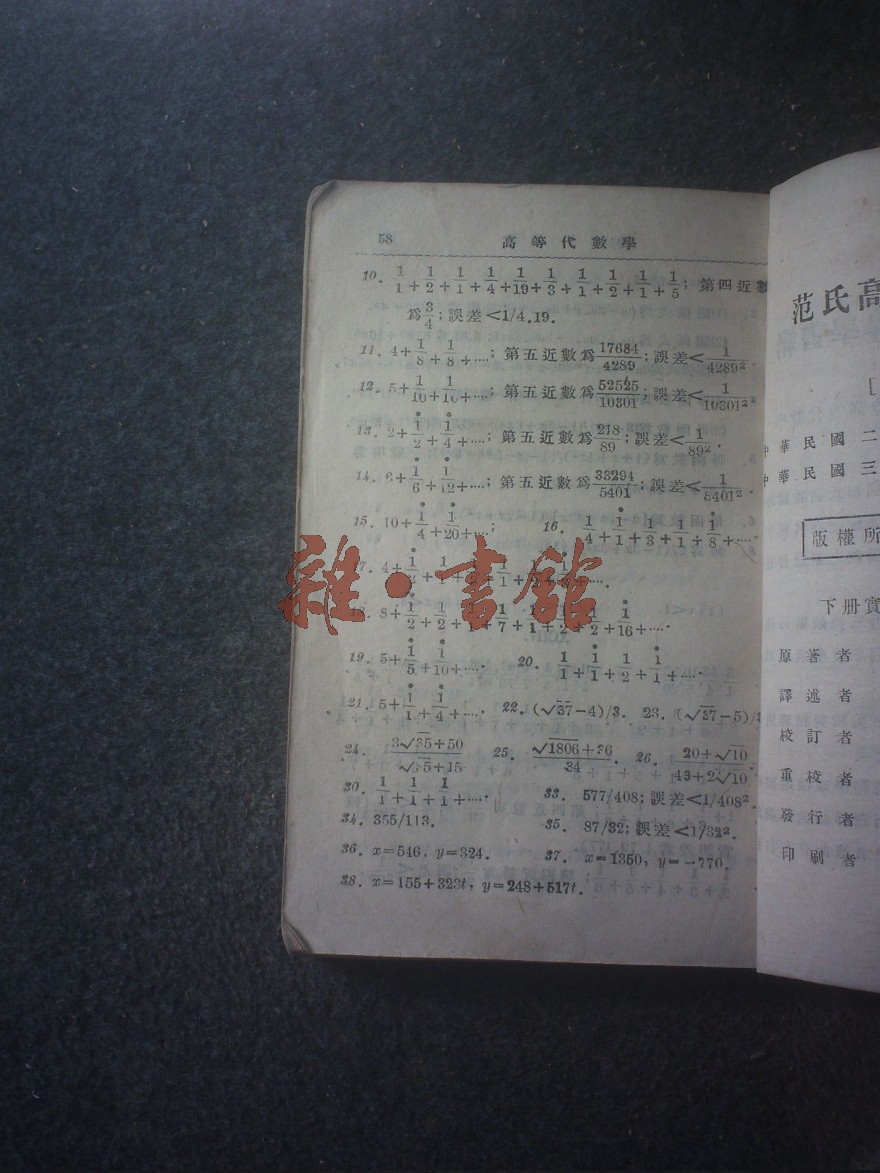 58 高等代數學
10. 1/1+ 1/2+ 1/1+ 1/4+ 1/19+ 1/3+ 1/1+ 1/2+ 1/1+ 1/5; 第四近數
爲3/4; 誤差<1/4.19.
11. 4+1/8+ 1/8+....; 第五近數爲17684/4289; 誤差<1/4289².
12. 5+1/10+ 1/10+....; 第五近數爲52525/10301; 誤差<1/10301².
13. 2+1/2+ 1/4+....; 第五近數爲218/89; 誤差<1/89².
14. 6+1/6+ 1/12+....; 第五近數爲33294/5401; 誤差<1/5401².
15. 10+1/4+ 1/20+....; 16. 1/4+ 1/1+ 1/3+ 1/1+ 1/8+....
17. 4+1/2+
18. 8+1/2+ 1/2+ 1/1+ 1/7+ 1/1+ 1/2+ 1/2+ 1/16+....
19. 5+1/5+ 1/10+.... 20. 1/1+ 1/1+ 1/2+ 1/1+....
21. 5+1/1+ 1/4+.... 22. (√37-4)/3. 23. (√37-5)/3
24. 3√35+50/√35+15 25. √1806+36/34. 26. 20+√10/43+2√10.
30. 1/1+ 1/1+ 1/1+.... 33. 577/408; 誤差<1/408².
34. 355/113. 35. 87/32; 誤差<1/32².
36. x=546, y=324. 37. x=1350, y=-770.
38. x=155+323t, y=248+517t.
雜·書館
范氏高
[
中華民國二
中華民國三
版權所
下册實
原著者
譯述者
校訂者
重校者
發行者
印刷者